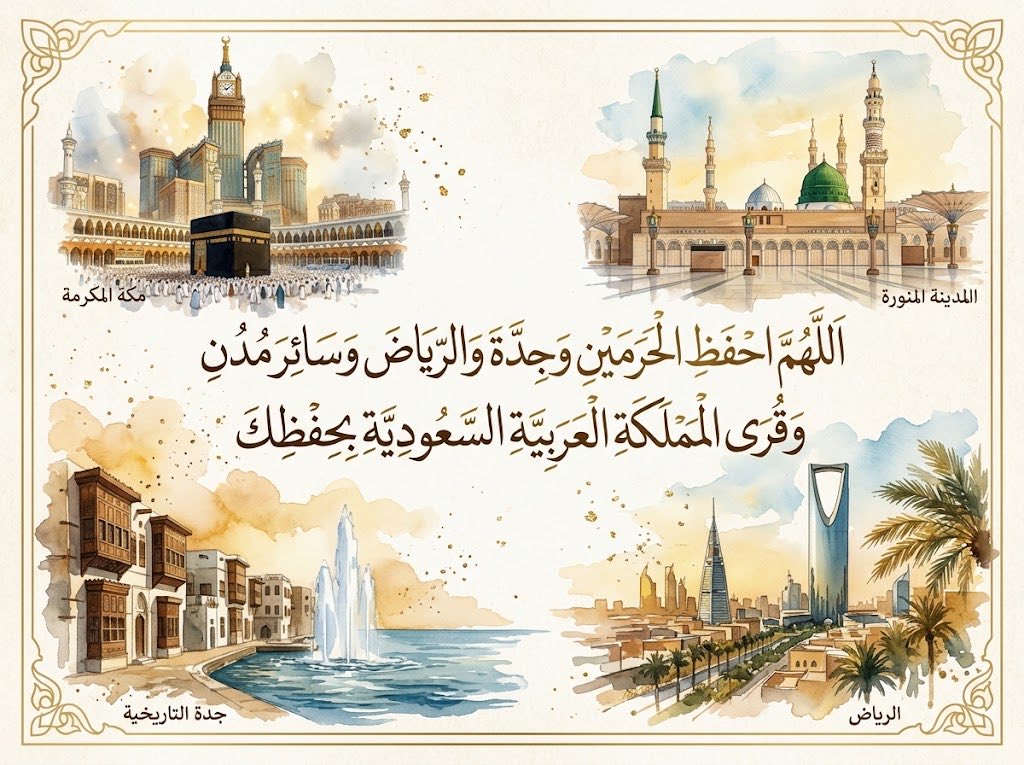 مكة المكرمة
االمدينة المنورة
اَللَّهُمَّ احْفَظِ الْحَرَمَيْنِ وَجِدَّةَ وَالرِّيَاضَ وَسَائِرَ مُدُنِ
وَقُرَى الْمَمْلَكَةِ الْعَرَبِيَّةِ السَّعُودِيَّةِ بِحِفْظِكَ
جدة التاريخية
الرياض